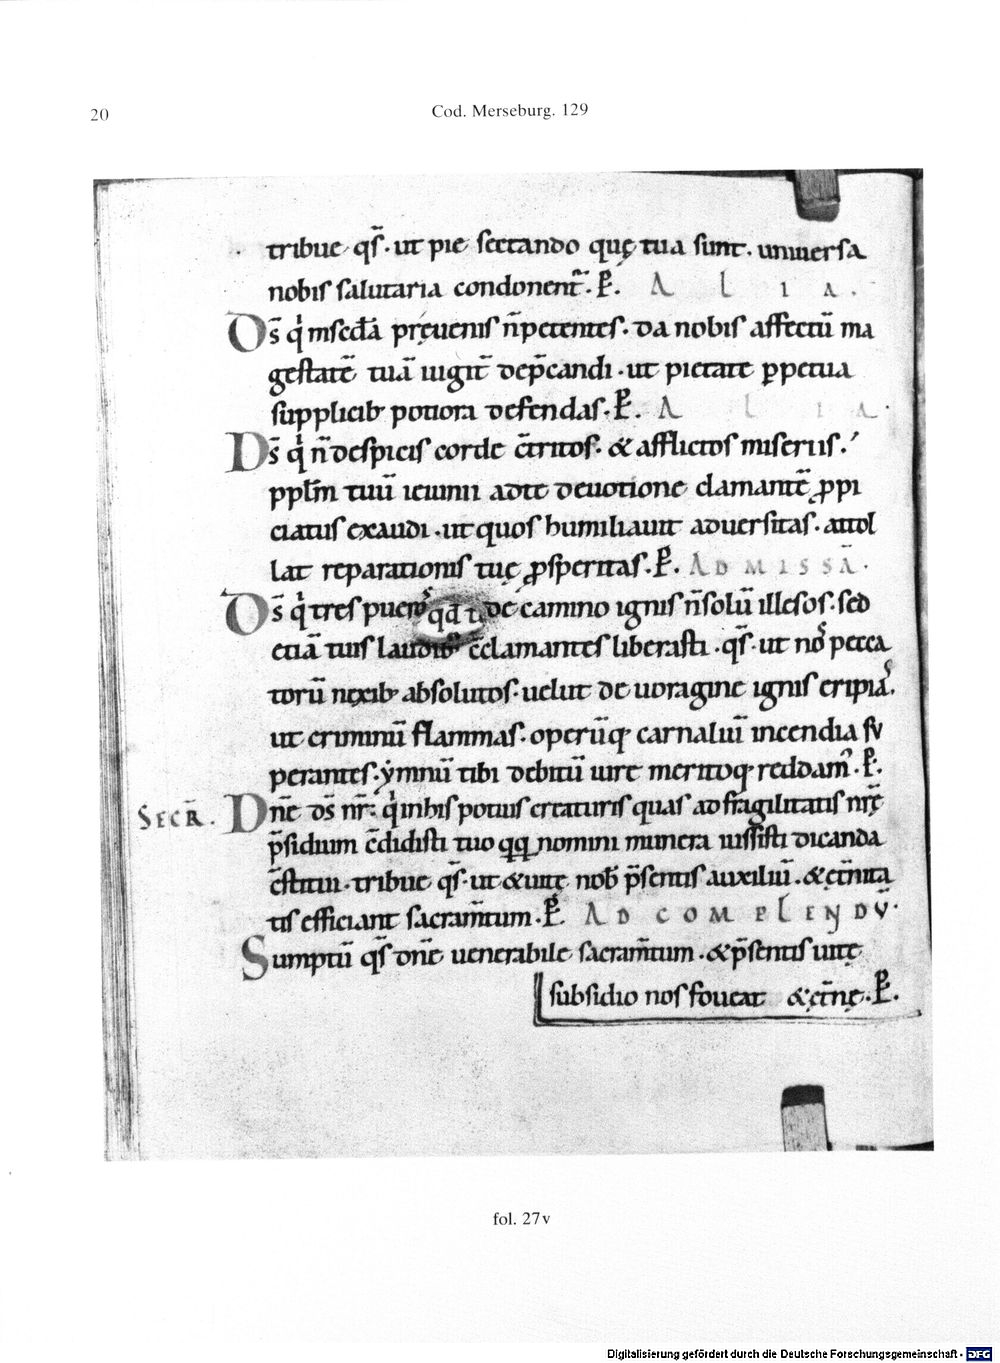 20
Cod. Merseburg. 129
tribue qs̄ · ut pie sectando quę tua sunt . uniuersa
nobis salutaria condonent᷑ . P̱ . A L I A .
D̄s qͥ mscdā pręuenis n̄ petentes · da nobis affectū ma
gestatē tuā iugit̄ dep̄candi · ut pietate ꝑpetua
supplicib' potiora defendas . P̱ . A L I A .
D̄s qͥ n̄ despicis corde c̄tritos · & afflictos miseriis .
ppl̄m tuū ieiunii ad te deuotione clamantē ꝓpi
ciatus exaudi · ut quos humiliauit aduersitas · attol
lat reparationis tuę ꝓsperitas . P̱ . A D M I S S Ā .
D̄s qͥ tres pueros de camino ignis n̄ solū illesos · sed
etiā tuis laudib' c̄clamantes liberasti · qs̄ · ut nos pecca
torū nexib' absolutos · uelut de uoragine ignis eripias .
ut criminū flammas · operūq' carnaliū incendia su
perantes · ẏmnū tibi debitū iure meritoq' reddam᷒ . P̱ .
SECR̄ . Dn̄e ds̄ nr̄ · qͥ in his potius creaturis quas ad fragilitatis nr̄ę
p̄sidium c̄didisti tuo qq nomini munera iussisti dicanda
c̄stitui · tribue qs̄ · ut & uitę nob̄ p̄sentis auxiliū . & ęt̄nita
tis efficiant sacram̄tum . P̱ . A D C O M P L E N D Ū .
Sumptū qs̄ dn̄e uenerabile sacram̄tum · & p̄sentis uitę
subsidio nos foueat & ęt̄nę . P̱ .
fol. 27v
Digitalisierung gefördert durch die Deutsche Forschungsgemeinschaft - DFG